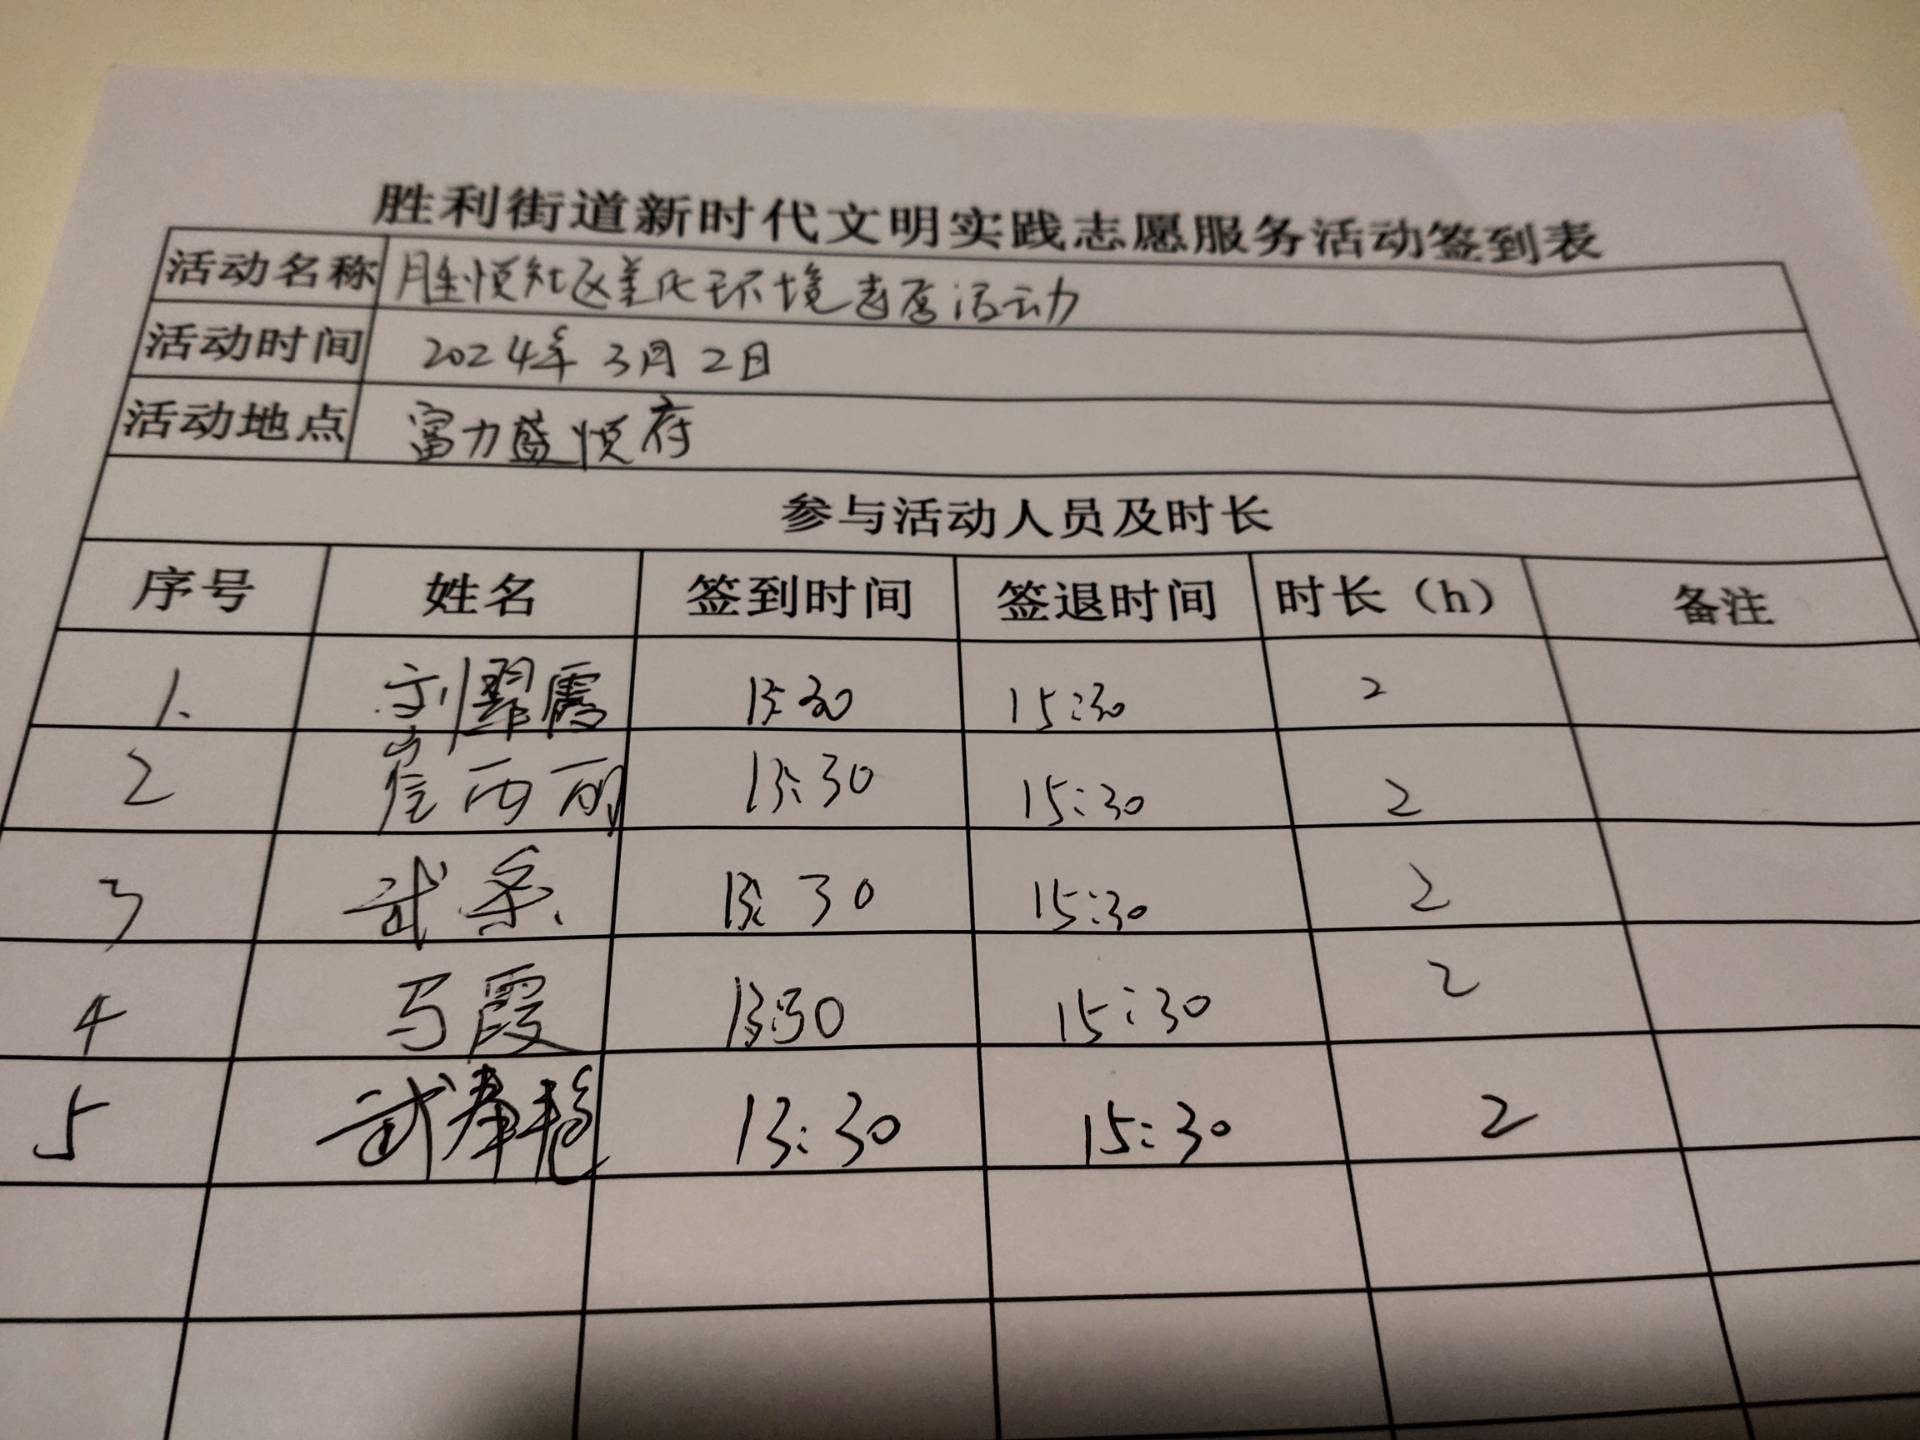 胜利街道新时代文明实践志愿服务活动签到表
活动名称 胜悦社区美化环境志愿活动
活动时间 2024年3月2日
活动地点 富力盛悦府
参与活动人员及时长
序号 姓名 签到时间 签退时间 时长（h） 备注
1. 刘翠霞 13:30 15:30 2
2 崔西丽 13:30 15:30 2
3 武 13:30 15:30 2
4 马霞 13:30 15:30 2
5 武春艳 13:30 15:30 2